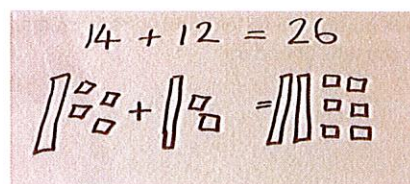 14 + 12 = 26
+ =